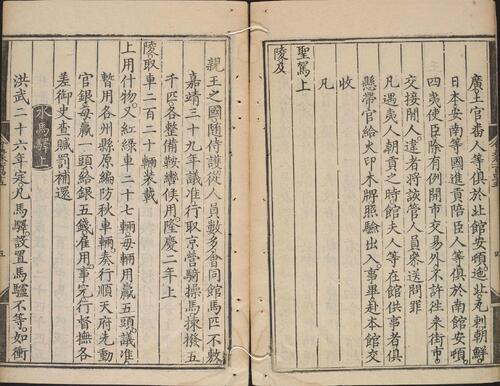 廣土官番人等俱於北館安頓迤北瓦剌朝鮮
日本安南等國進貢陪臣人等俱於南館安頓
四夷使臣除有例開市交易外不許往来街市
交接閒人違者將該管人員叅送問罪
凡遇夷人朝貢之時館夫人等在館供事者俱
懸帶官給火印木牌照驗出入事畢赴本館交
收
凡
聖駕上
陵及
親王之國隨侍護從人員數多會同館馬匹不敷
嘉靖三十九年議准行取京營騎操馬揀撥五
千匹各整備鞍轡俟用隆慶二年上
陵取車二百二十輛装載
上用什物又紅綠車二十七輛每輛用贏五頭議准
暫用各州縣原編防秋車輛奏行順天府先動
官銀每贏一頭給銀五錢雇用事完行督撫各
差御史查贓罰補還
水馬驛上
洪武二十六年定凡馬驛設置馬驢不等如衝